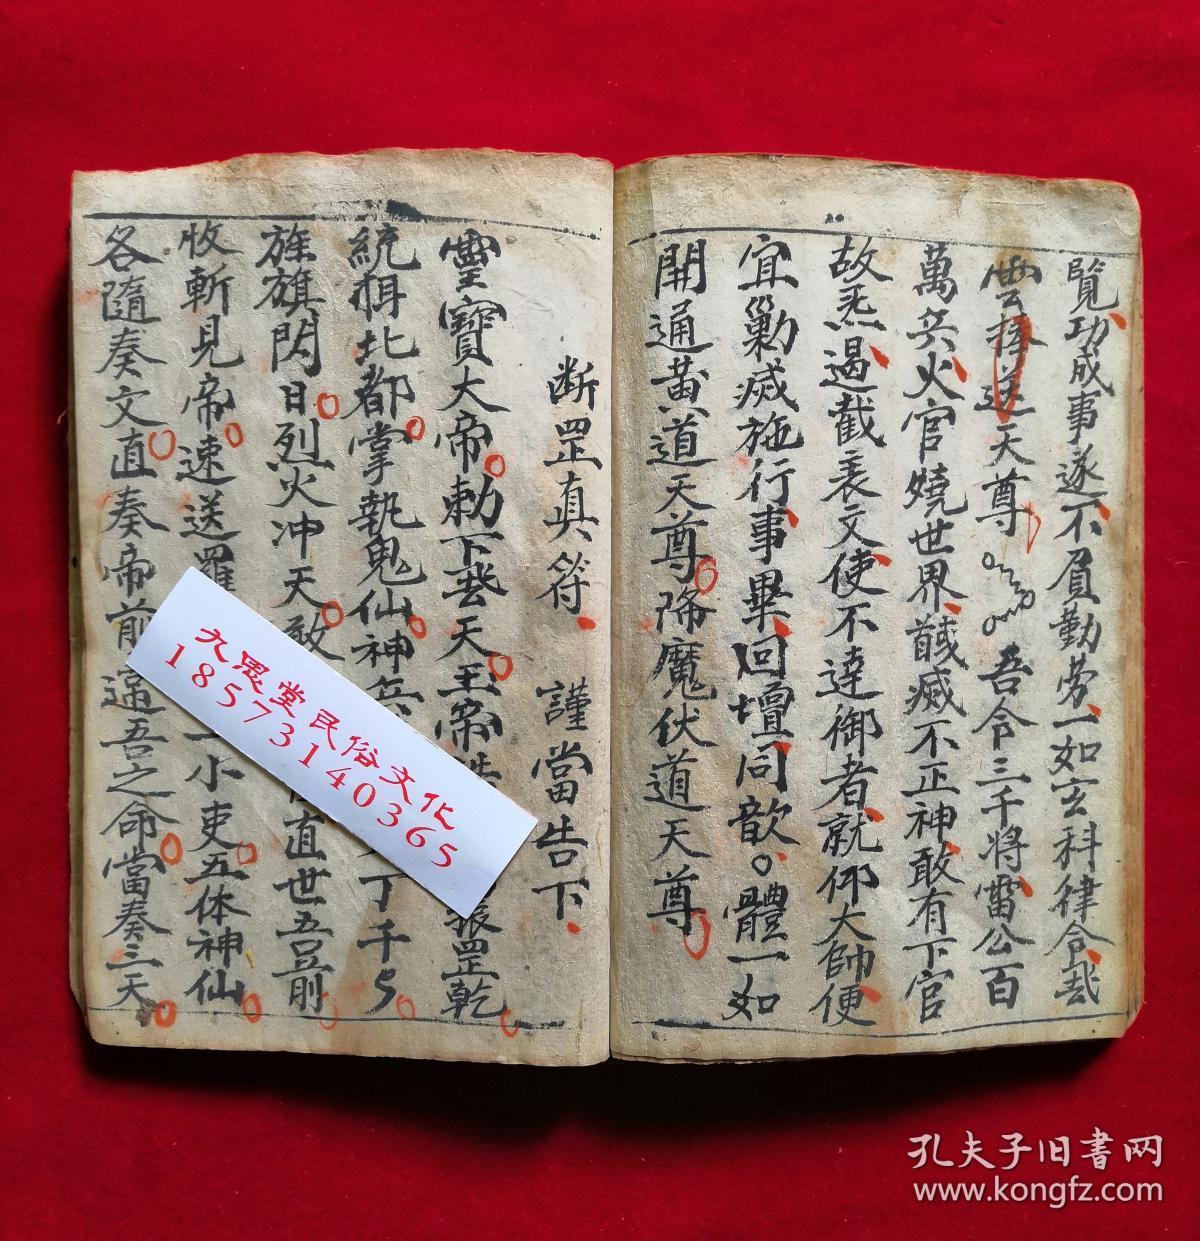 覧功成事遂不負勤劳一如玄科律令
雲捧送天尊 吾令三千将雷公百
萬兵火官燒世界馘滅不正神敢有下官
故炁遏截表文使不達御者就仰大帥便
宜剿滅施行事畢回壇同歆體一如
開通黄道天尊降魔伏道天尊
断罡真符 謹當告下
靈寶大帝勅下 天王 罡乾
統摄北都掌執鬼仙神兵 丁千
旌旗閃日烈火冲天敢 直世 前
收斬見帝速送羅 一小吏五体神仙
各隨奏文直奏帝前 吾之命當奏三天
久思堂民俗文化
18573140365
孔夫子旧书网
www.kongfz.com